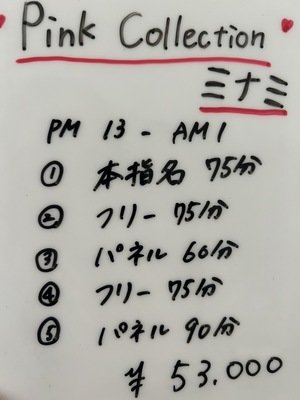 Pink Collection
ミナミ
PM 13 - AM1
① 本指名 75分
② フリー 75分
③ パネル 60分
④ フリー 75分
⑤ パネル 90分
¥ 53.000